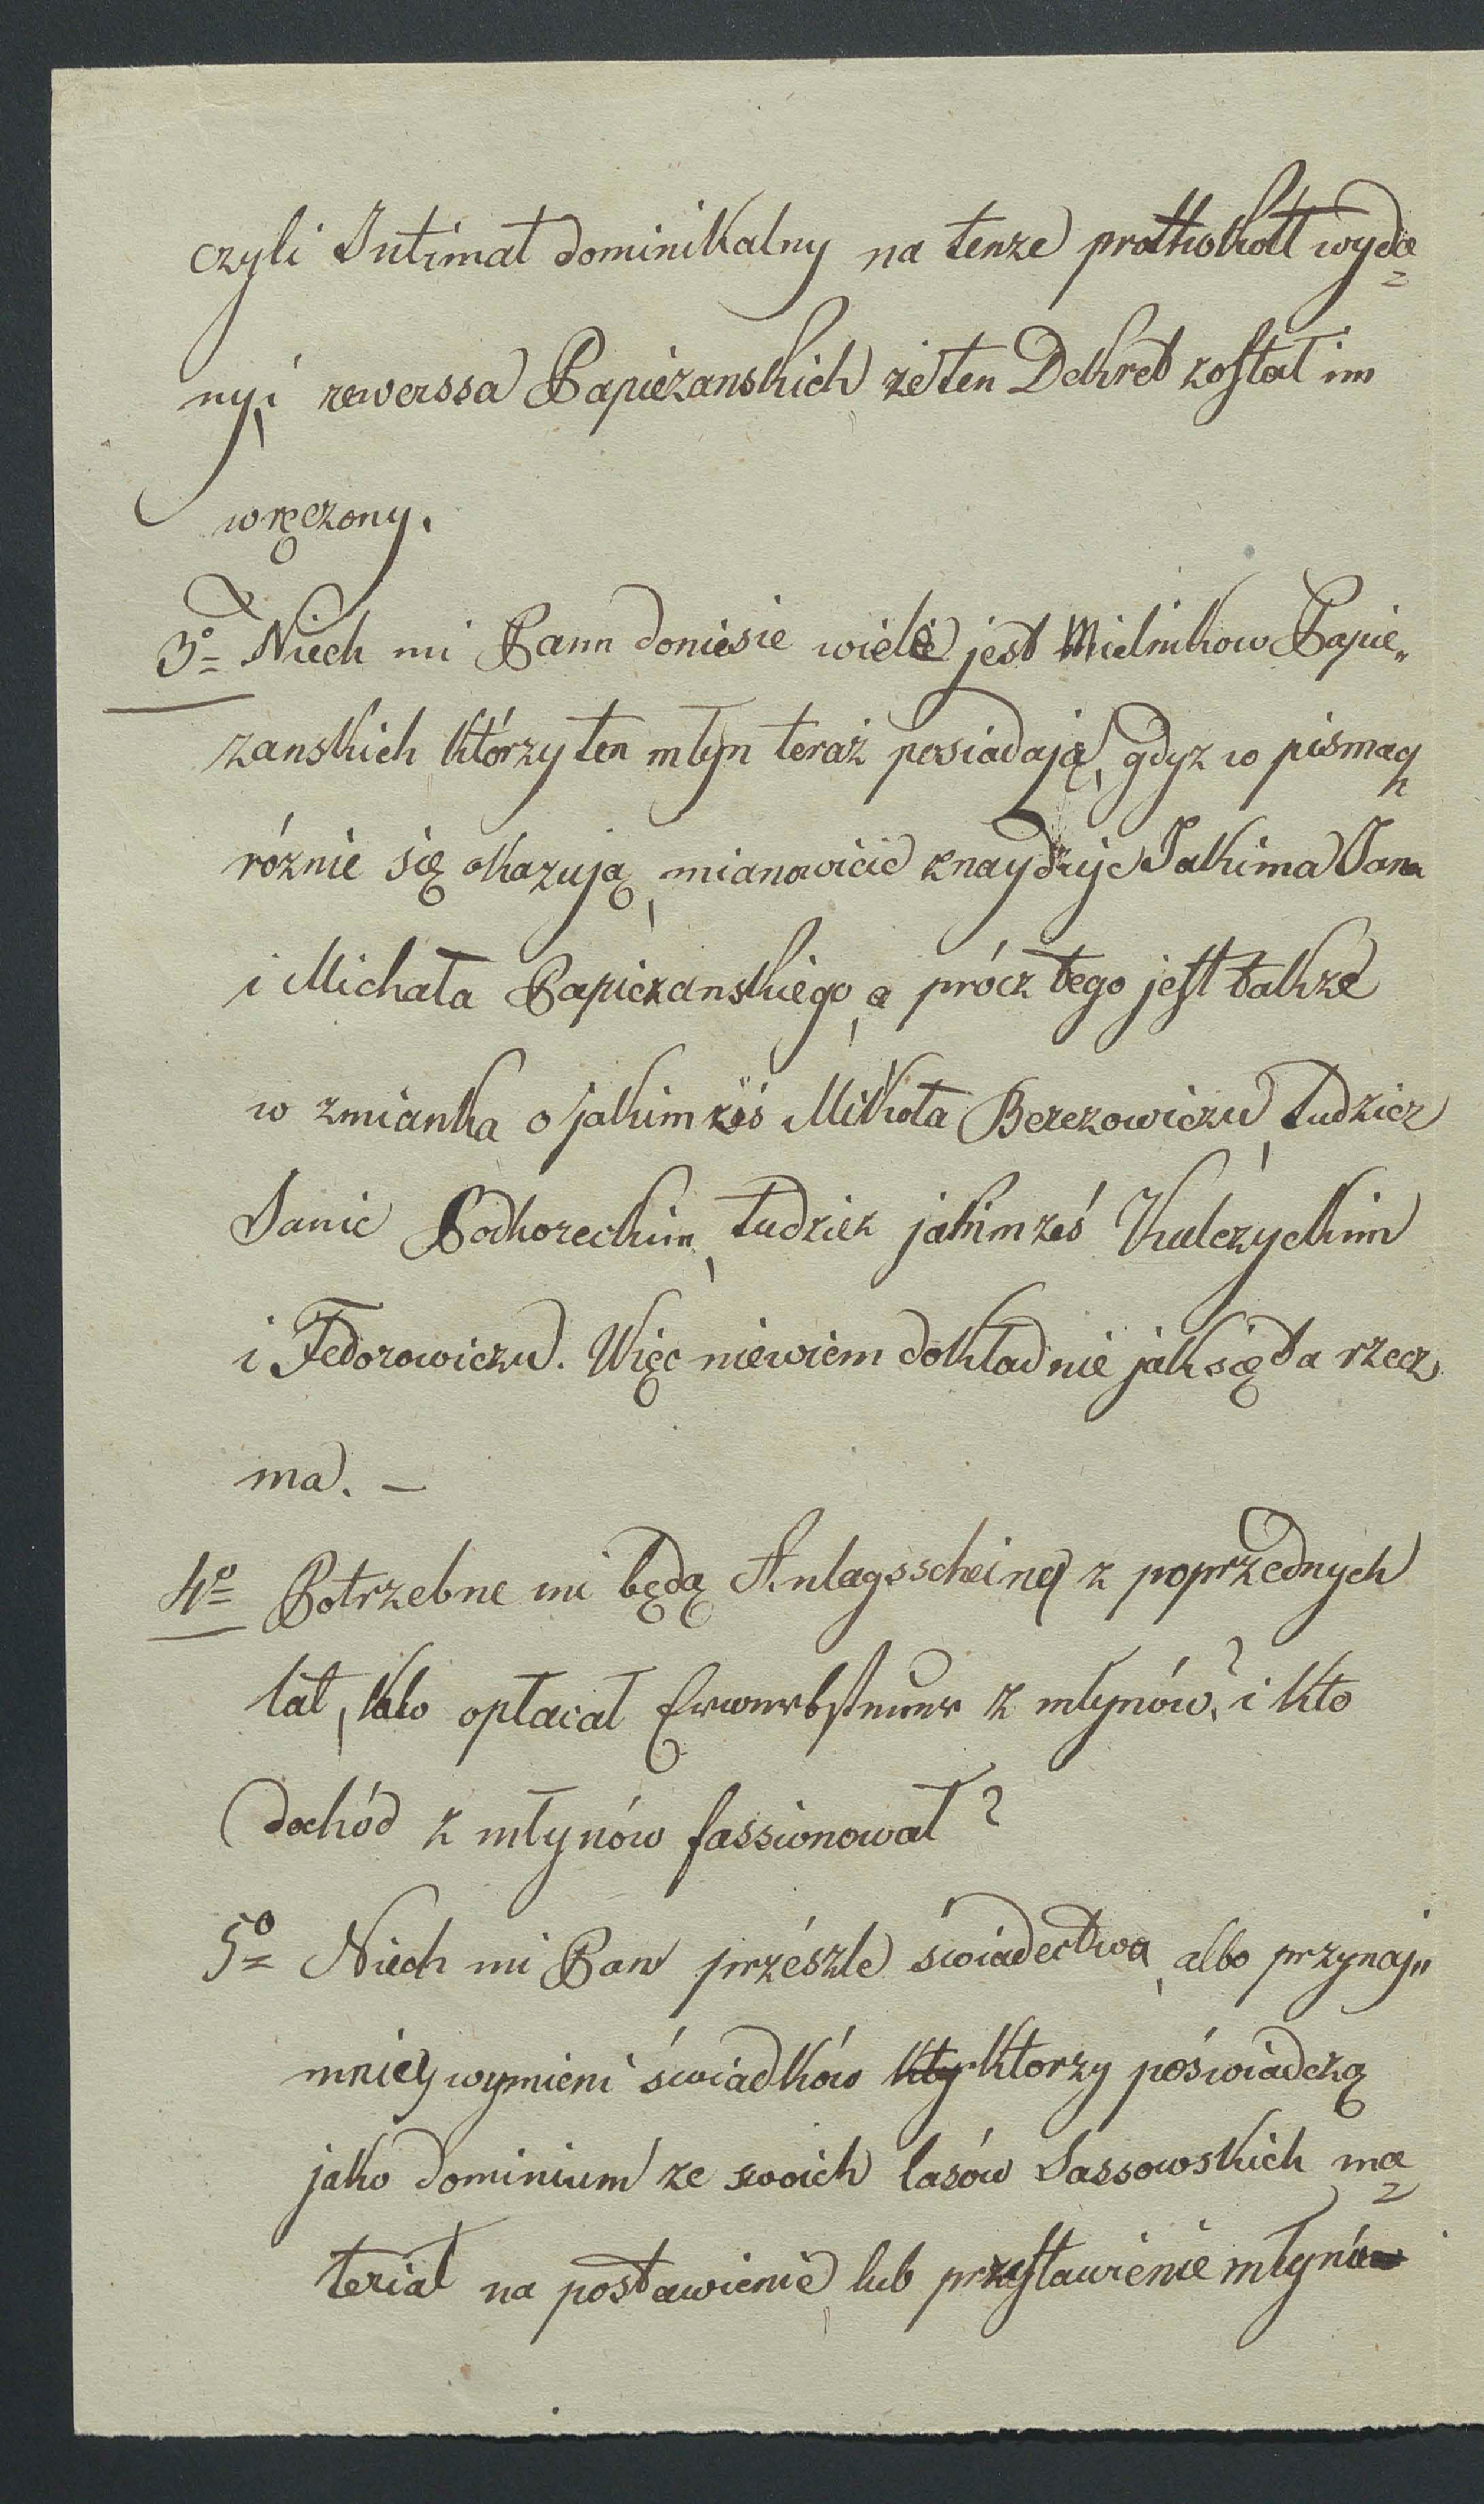 czyli Intimat dominikalny na tenze prothokołł wyda=
ny, i rewerssa Papiezanskich że ten Dekret został im
wręczony.
3o= Niech mi Pann doniesie wiele jest Mielnikow Papie„
zanskich którzy ten młyn teraz posiadają, gdyz w pismach
róznie się okazują, mianowicie znayduje Jakima Jana
i Michała Papiezanskiego, a prócz tego jest takze
w zmianka o jakimzsiś Mikoła Berezowiczu, tudziez
Janie Podhoreckim, tudziez jakimześ Kulczyckim
i Fedorowiczu. Więc niewiem dokładnie jak się ta rzecz
ma. —
4o= Potrzebne mi będą Anlagsscheiny z poprzednych
lat, kto opłacał Erwerbsteuer z młynów? i kto
dochód z młynów fassionował?
5o= Niech mi Pan przészle świadectwa, albo przynaj„
mniey wymieni świadków kty ktorzy poświadczą
jako dominium ze swoich lasów Sassowskich ma=
teriał na postawienie lub przestawienie młynów